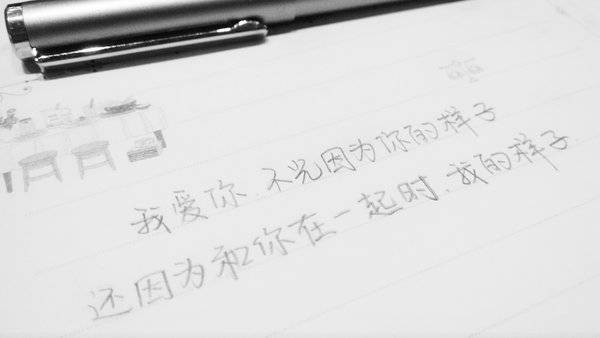 我爱你 不光因为你的样子
还因为和你在一起时.我的样子